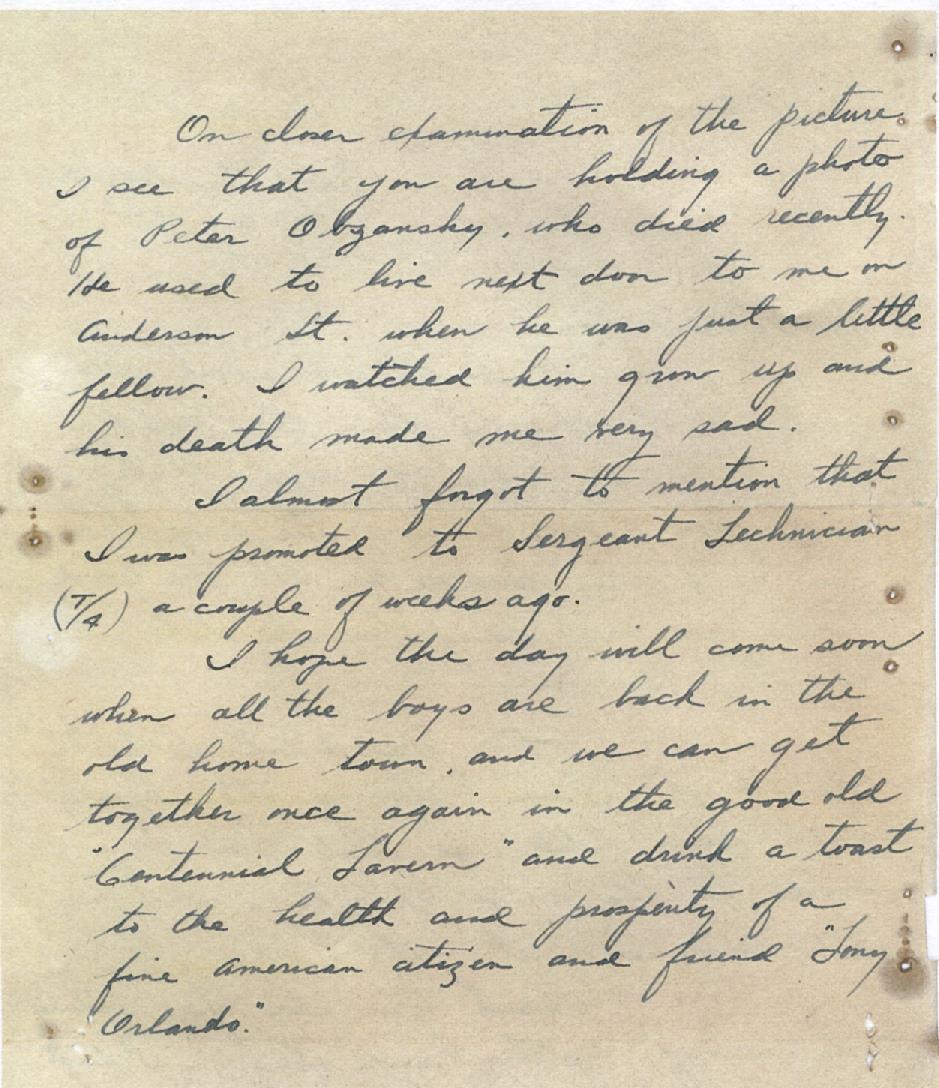 On closer examination of the picture,
I see that you are holding a photo
of Peter Obzansky, who died recently.
He used to live next door to me on
Anderson St. when he was just a little
fellow. I watched him grow up and
his death made me very sad.
I almost forgot to mention that
I was promoted to Sergeant Technician
(T/4) a couple of weeks ago.
I hope the day will come soon
when all the boys are back in the
old home town, and we can get
together once again in the good old
"Centennial Tavern" and drink a toast
to the health and prosperity of a
fine American citizen and friend "Tony
Orlando."